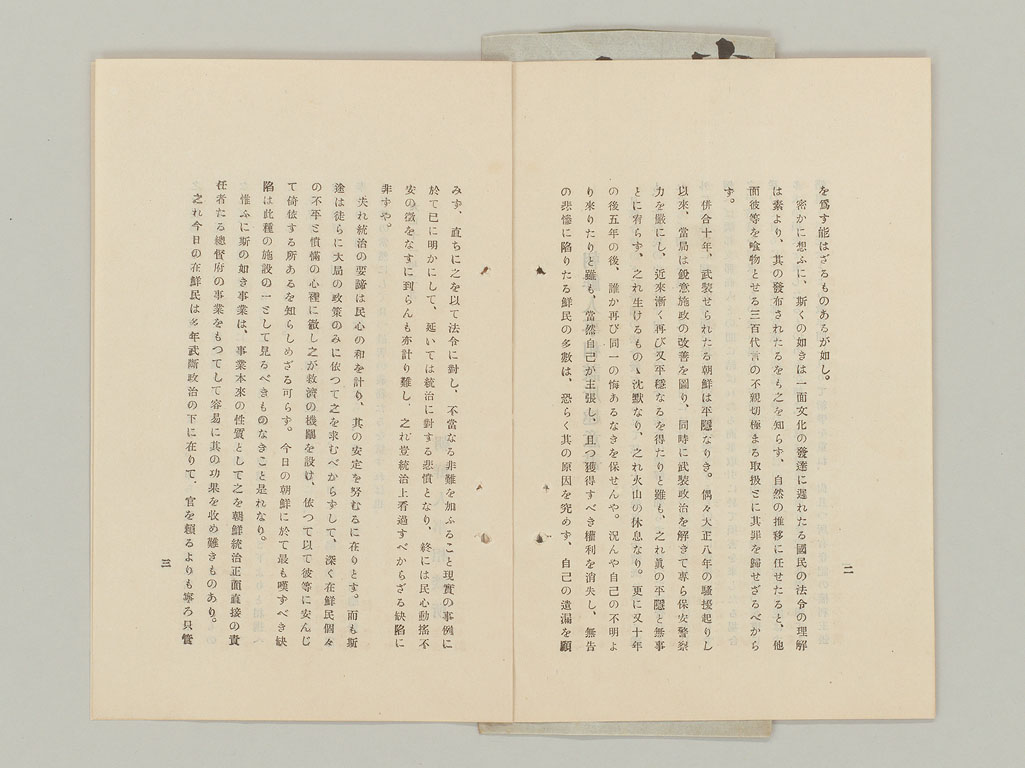 を爲す能はざるものあるが如し。
密かに想ふに、斯くの如きは一面文化の發達に遲れたる國民の法令の理解
は素より、其の發布されたるをも之を知らず、自然の推移に任せたると、他
面彼等を喰物とせる三百代言の不親切極まる取扱とに其罪を歸せざるべから
ず。
併合十年、武裝せられたる朝鮮は平隱なりき。偶々大正八年の騷擾起りし
以來、當局は銳意施政の改善を圖り、同時に武裝政治を解きて專ら保安警察
力を嚴にし、近來漸く再び又平穩なるを得たりと雖も、之れ眞の平隱と無事
とに宥らず、之れ生けるものゝ沈默なり、之れ火山の休息なり。更に又十年
の後五年の後、誰か再び同一の悔あるなきを保せんや。況んや自己の不明よ
り來りたりと雖も、當然自己が主張し、且つ獲得すべき權利を消失し、無告
の悲慘に陷りたる鮮民の多數は、恐らく其の原因を究めず、自己の遺漏を顧
二
みず、直ちに之を以て法令に對し、不當なる非難を加ふること現實の事例に
於て已に明かにして、延いては統治に對する悲憤となり、終には民心動搖不
安の徵をなすに到らんも亦計り難し、之れ豈統治上看過すべからざる缺陷に
非ずや。
夫れ統治の要諦は民心の和を計り、其の安定を努むるに在りとす。而も斯
途は徒らに大局の政策のみに依つて之を求むべからずして、深く在鮮民個々
の不平と憤懣の心裡に徹し之が救濟の機關を設け、依つて以て彼等に安んじ
て倚依する所あるを知らしめざる可らず。今日の朝鮮に於て最も嘆ずべき缺
陷は此種の施設の一として見るべきものなきこと是れなり。
惟ふに斯の如き事業は、事業本來の性質として之を朝鮮統治正面直接の責
任者たる總督府の事業をもつてして容易に其の功果を收め難きものあり。
之れ今日の在鮮民は多年武斷政治の下に在りて、官を賴るよりも寧ろ只管
三